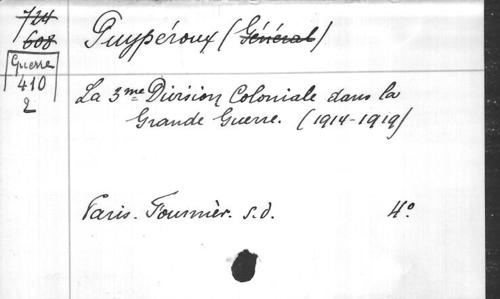 724
608
Guerre
410
2
Puypéroux (Général)
La 3me Division Coloniale dans la
Grande Guerre. (1914-1919)
Paris. Fournier. s.d. 4º